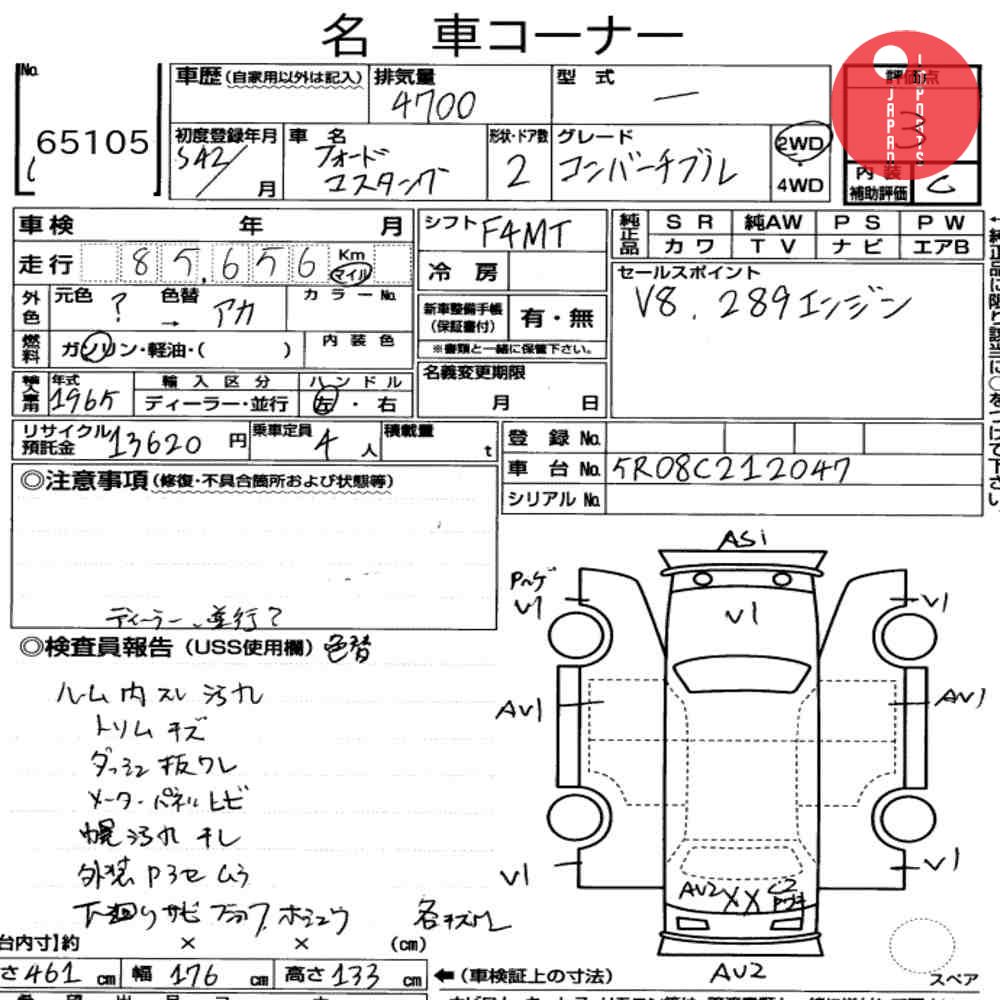 名 車コーナー
No.
65105
車歴(自家用以外は記入)
排気量
4700
型 式
ー
評価点
3
JAPAN
IMPORTS
初度登録年月
S42/
月
車 名
フォード
マスタング
形状・ドア数
2
グレード
コンバーチブル
2WD
4WD
内 装
補助評価
C
車検 年 月
シフト F4MT
純正品
S R 純AW P S P W
カ ワ T V ナ ビ エアB
走行 85,656 Km
マイル
冷 房
セールスポイント
V8. 289エンジン
外色
元色 ? 色替
→ アカ
カ ラ ー No.
新車整備手帳
(保証書付)
有・無
※書類と一緒に保管下さい。
燃料
ガソリン・軽油・( )
内 装 色
名義変更期限
月 日
年式
1965
輸 入 区 分
ディーラー・並行
ハ ン ド ル
左 ・ 右
リサイクル
預託金
13620 円
乗車定員 4 人
積載量 t
登 録 No.
車 台 No. 5R08C212047
シリアル No.
◎注意事項(修復・不具合箇所および状態等)
ディーラー、並行?
◎検査員報告(USS使用欄) 色替
ルーム内 スレ 汚れ
トリム キズ
ダッシュ板ワレ
メーター・パネル ヒビ
幌 汚れ キレ
外装 Pヨセ ムラ
下廻りサビ
AS1
V1
V1
V1
AV1
AV1
V1
V1
AV2 X X C2
AV2
スペア
台内寸】約 × × (cm)
さ461 cm 幅 176 cm 高さ133 cm
(車検証上の寸法)